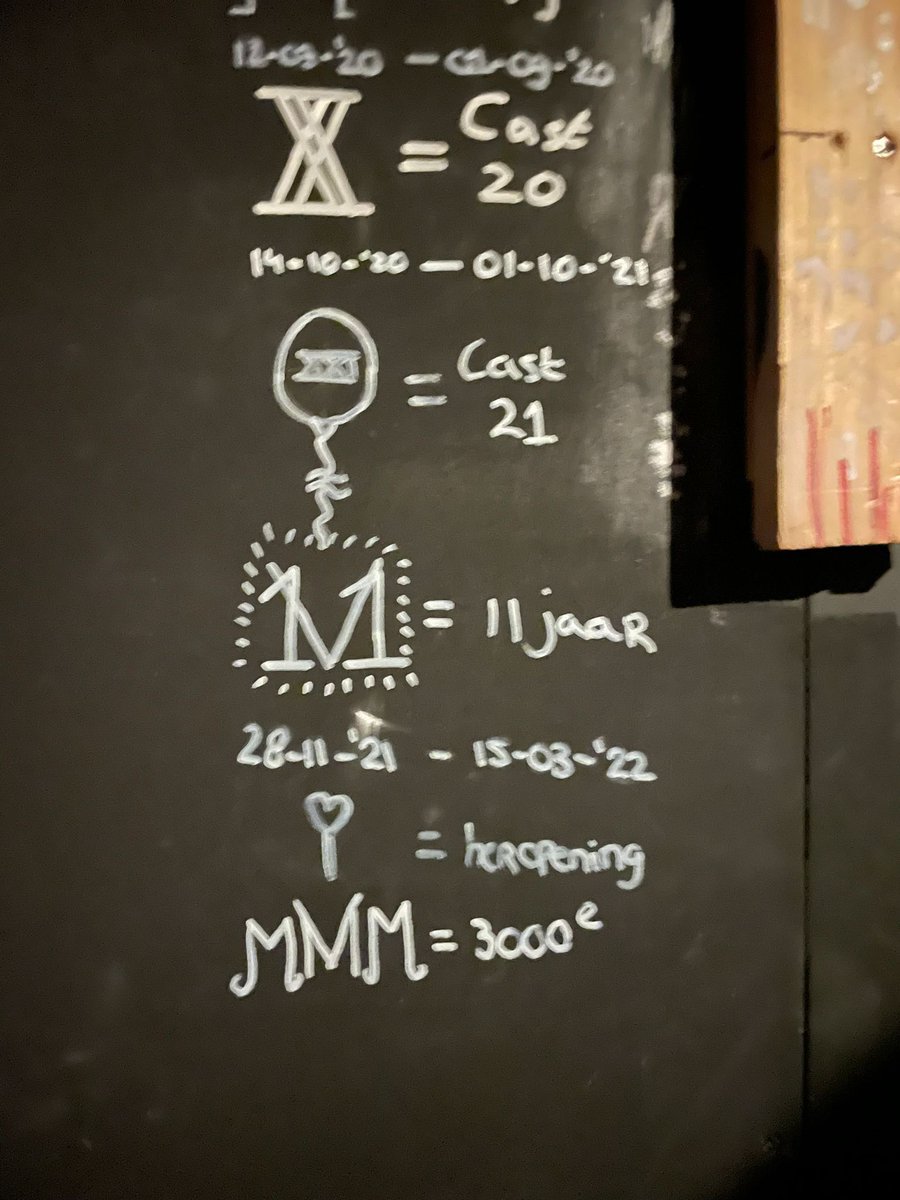 12-03-'20 - 02-09-'20
XX = Cast 20
14-10-'20 - 01-10-'21
XXI = Cast 21
M = 11 jaar
28-11-'21 - 15-03-'22
= heropening
MMM = 3000e